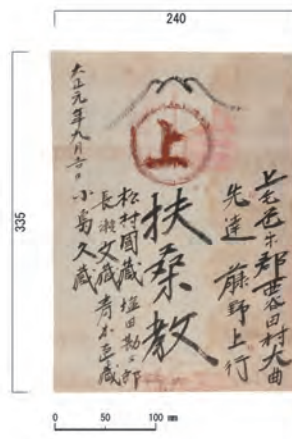 240
335
上
上毛邑楽郡西谷田村大曲
先達 藤野上行
扶桑教
松村國藏 塩田勘三郎
長瀬文藏 青木豆藏
小島久藏
大正元年九月吉日
0 50 100 mm